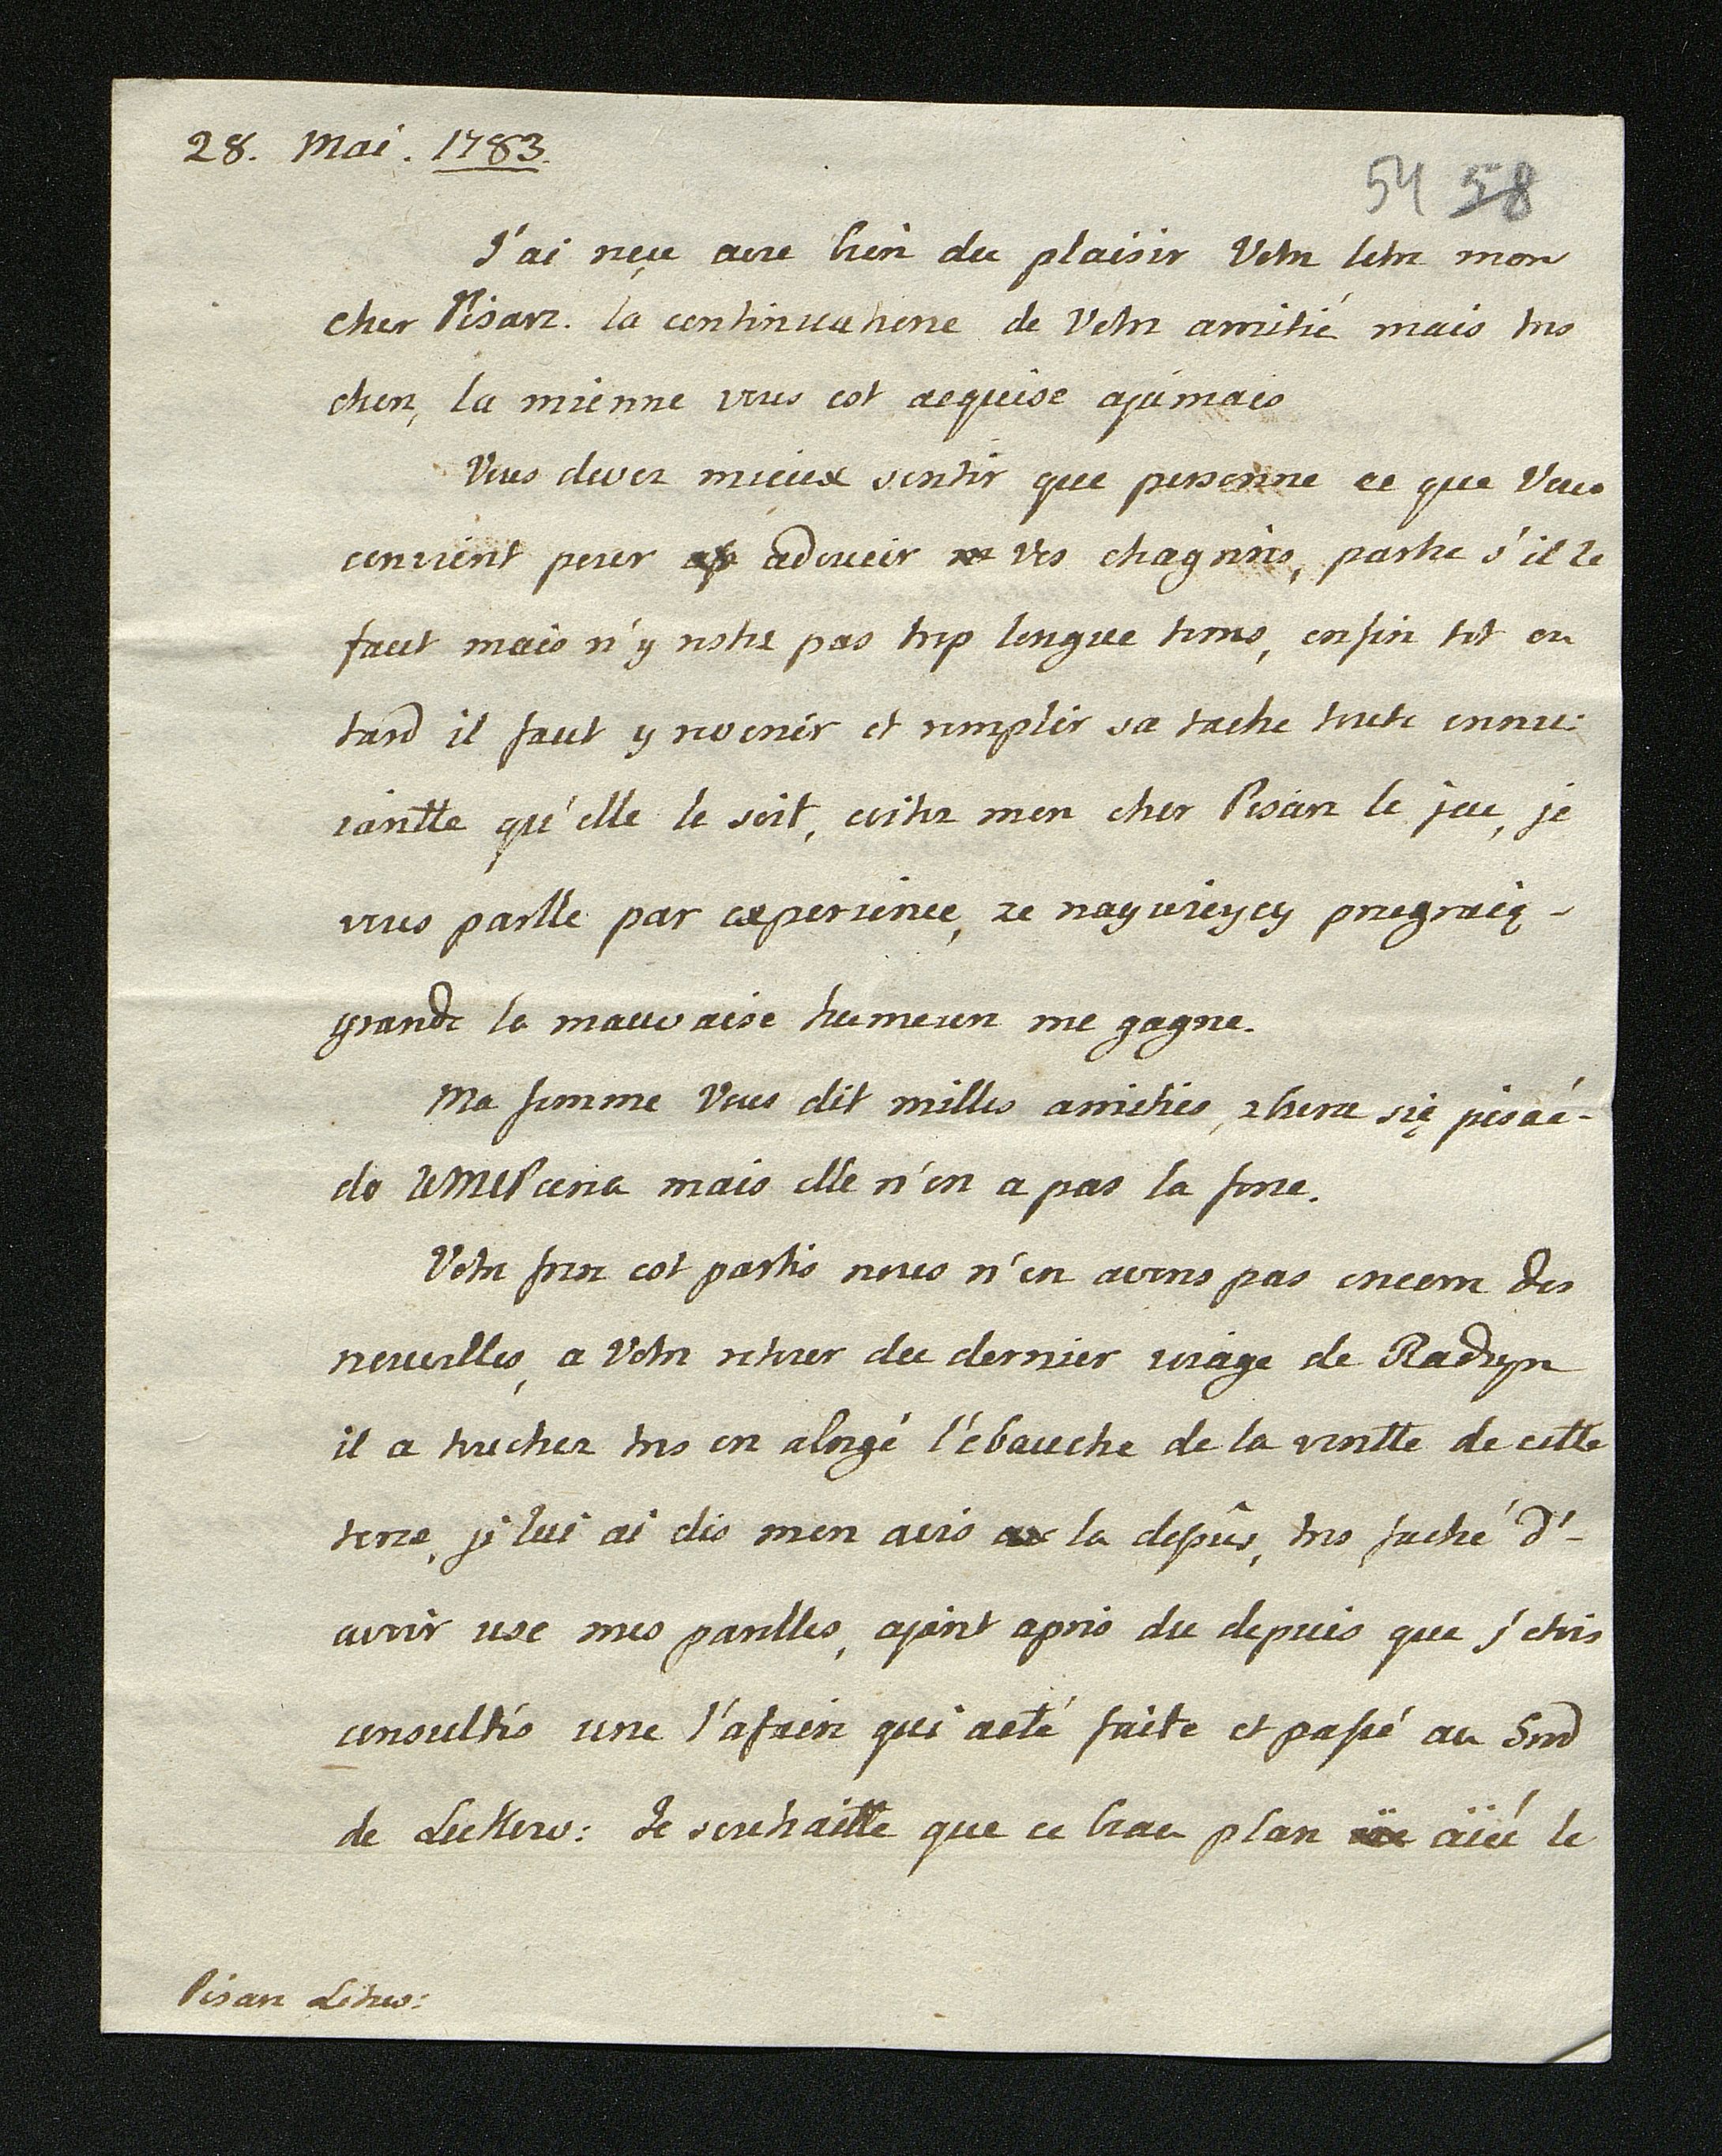 28. Mai. 1783.
54 58
J'ai reçu avec bien du plaisir Votre letre mon
cher Pisarz. la continuatione de Votre amitié mais tres
cher, la mienne vous est aequise ajamais
Vous devez mieux sentir que personne ce que Vous
convient pour adoucir vos chagrins, partez s'il le
faut mais n'y restez pas trop longue tems, enfin tot ou
tard il faut y revenir et remplir sa tache toute ennu:
iantte qu'elle le soit, evitez mon cher Pisarz le jeu, je
vous parlle par experience, ze naywięycy przegraię -
grande la mauvaise humeur me gagne.
Ma femme Vous dit milles amitiés, zbiera się pisać -
do WMCPana mais elle n'en a pas la force.
Votre frere est partis nous n'en avons pas encore des
nouvelles, a Votre retour du dernier voiage de Radzyn
il a toucher tres en alongé l'ébauche de la ventte de cette
terre, je lui ai dis mon avis la depûs, tres faché d'-
avoir use mes parolles, ajant apris du depuis que j'etois
consultés une l'afaire qui aeté faite et passé au Grod
de Łukow: Je souhaitte que ce beau plan aïé le
Pisarz Litew: